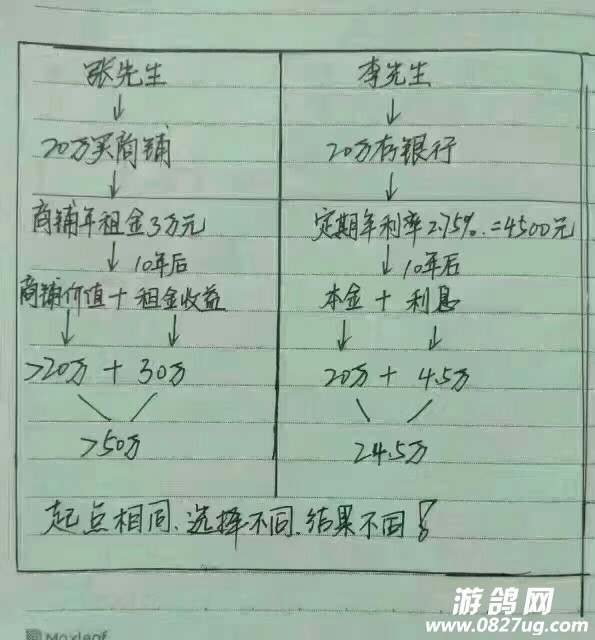 张先生
↓
20万买商铺
↓
商铺年租金3万元
↓10年后
商铺价值+租金收益
↓ ↓
>20万+30万
>50万
李先生
↓
20万存银行
↓
定期年利率2.75%.=4500元
↓10年后
本金+利息
↓ ↓
20万+4.5万
24.5万
起点相同.选择不同.结果不同!
游鸽网
www.0827ug.com
Moxleaf